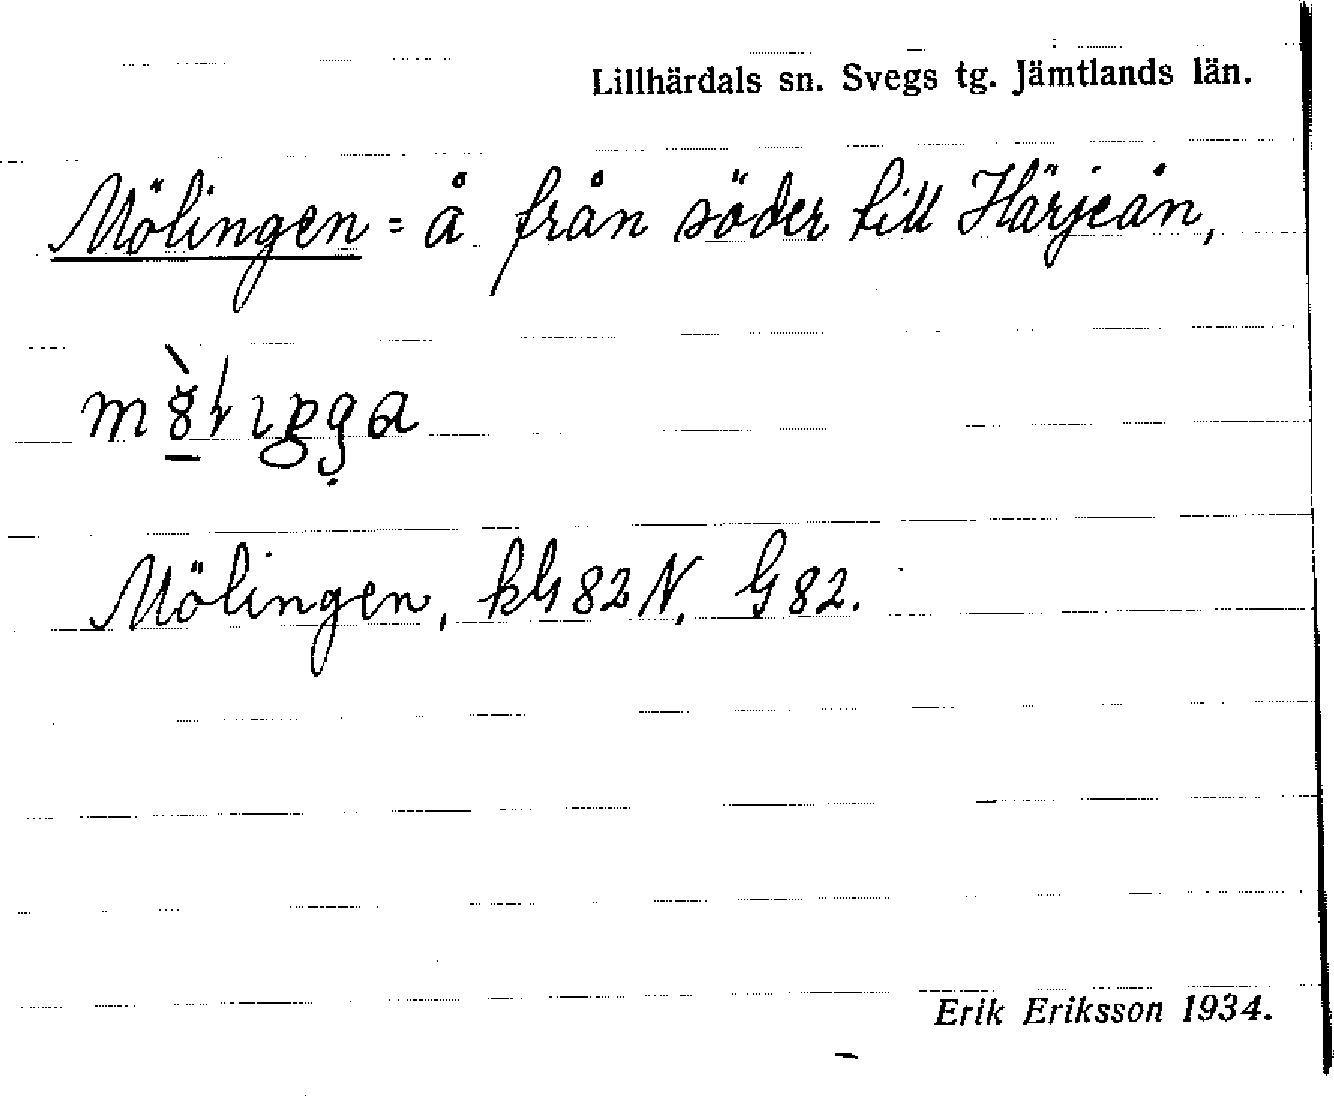 Lillhärdals sn. Svegs tg. Jämtlands län.
Mölingen = å från söder till Härjeån,
Mölingen, kG82N, G82.
Erik Eriksson 1934.